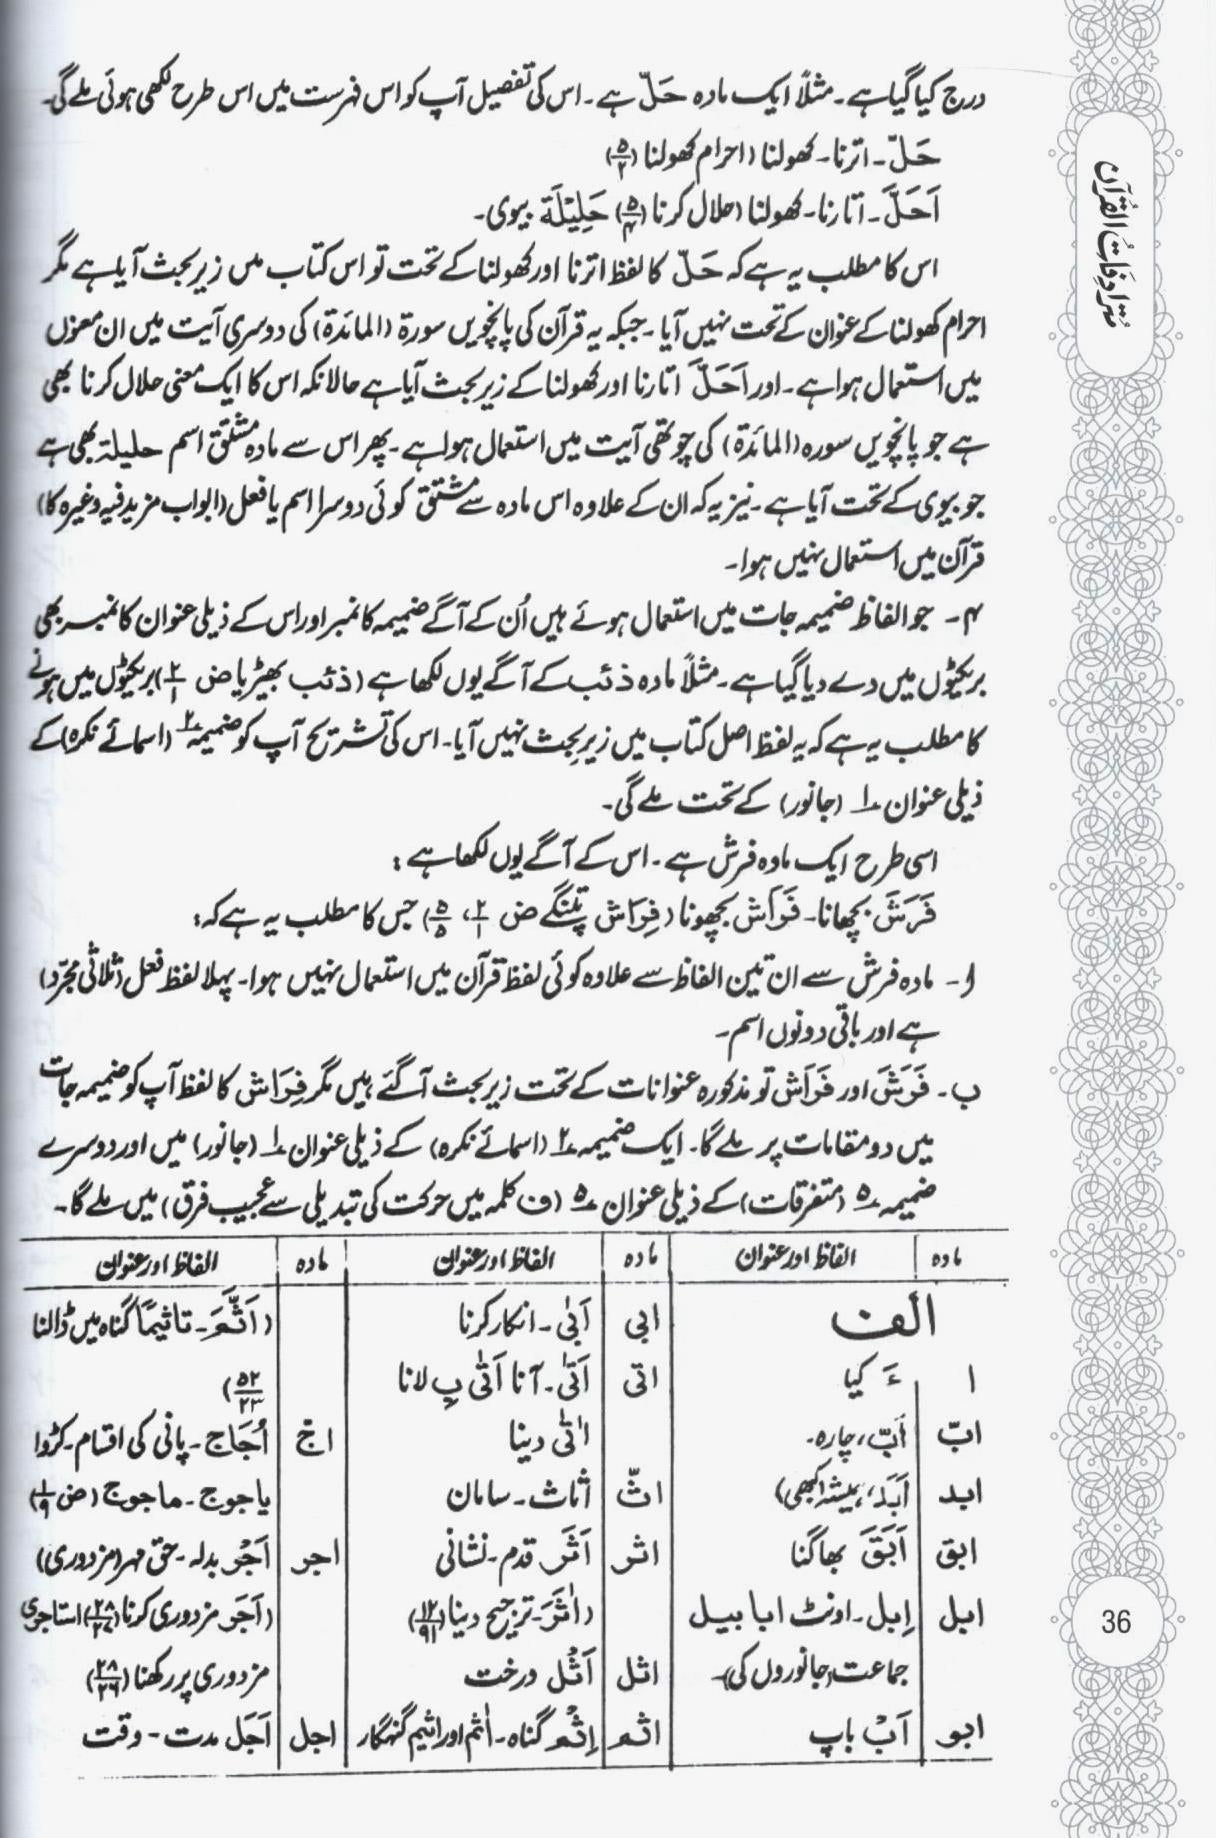 درج کیا گیا ہے۔ مثلاً ایک مادہ حَلّ ہے۔ اس کی تفصیل آپ کو اس فہرست میں اس طرح لکھی ہوئی ملے گی۔
حَلّ۔ اترنا۔ کھولنا (احرام کھولنا (۵/۲)
اَحَلَّ۔ اتارنا۔ کھولنا (حلال کرنا (۵/۴) حَلِیْلَة بیوی۔
اس کا مطلب یہ ہے کہ حَلّ کا لفظ اترنا اور کھولنا کے تحت تو اس کتاب میں زیر بحث آیا ہے مگر
احرام کھولنا کے عنوان کے تحت نہیں آیا۔ جبکہ یہ قرآن کی پانچویں سورۃ (المائدۃ) کی دوسری آیت میں ان معنوں
میں استعمال ہوا ہے۔ اور اَحَلَّ اتارنا اور کھولنا کے زیر بحث آیا ہے حالانکہ اس کا ایک معنی حلال کرنا بھی
ہے جو پانچویں سورہ (المائدۃ) کی چوتھی آیت میں استعمال ہوا ہے۔ پھر اس سے مادہ مشتق اسم حلیلۃ بھی ہے
جو بیوی کے تحت آیا ہے۔ نیز یہ کہ ان کے علاوہ اس مادہ سے مشتق کوئی دوسرا اسم یا فعل (ابواب مزید فیہ وغیرہ کا)
قرآن میں استعمال نہیں ہوا۔
۴۔ جو الفاظ ضمیمہ جات میں استعمال ہوئے ہیں اُن کے آگے ضمیمہ کا نمبر اور اس کے ذیلی عنوان کا نمبر بھی
بریکٹوں میں دے دیا گیا ہے۔ مثلاً مادہ ذئب کے آگے یوں لکھا ہے (ذئب بھیڑیا ض ۲/۱) بریکٹوں میں ہونے
کا مطلب یہ ہے کہ یہ لفظ اصل کتاب میں زیرِ بحث نہیں آیا۔ اس کی تشریح آپ کو ضمیمہ ۲ (اسمائے نکرہ) کے
ذیلی عنوان ۱ (جانور) کے تحت ملے گی۔
اسی طرح ایک مادہ فرش ہے۔ اس کے آگے یوں لکھا ہے :
فَرَشَ بچھانا۔ فَرَاش بچھونا (فِرَاش پتنگے ض ۲/۱، ۵/۵) جس کا مطلب یہ ہے کہ:
ا۔ مادہ فرش سے ان تین الفاظ سے علاوہ کوئی لفظ قرآن میں استعمال نہیں ہوا۔ پہلا لفظ فعل (ثلاثی مجرّد)
ہے اور باقی دونوں اسم۔
ب۔ فَرَشَ اور فَرَاش تو مذکورہ عنوانات کے تحت زیر بحث آ گئے ہیں مگر فِرَاش کا لفظ آپ کو ضمیمہ جات
میں دو مقامات پر ملے گا۔ ایک ضمیمہ ۲ (اسمائے نکرہ) کے ذیلی عنوان ۱ (جانور) میں اور دوسرے
ضمیمہ ۵ (متفرقات) کے ذیلی عنوان ۵ (ف کلمہ میں حرکت کی تبدیلی سے عجیب فرق) میں ملے گا۔
مادہ الفاظ اور عنوان
الف
ا ءَ کیا
ابّ اَبّ، چارہ۔
ابد اَبَد، ہمیشہ (کبھی)
ابق اَبَقَ بھاگنا
ابل اِبل۔ اونٹ ابابیل
جماعت (جانوروں کی)۔
ابو اَبْ باپ
مادہ الفاظ اور عنوان
ابی اَبٰی۔ انکار کرنا
اتی اَتٰی۔ آنا اَتٰی بِ لانا
اٰتٰی دینا
اثّ اَثاث۔ سامان
اثر اَثَر قدم۔ نشانی
(اٰثَرَ۔ ترجیح دینا (۱۲/۹۱)
اثل اَثْل درخت
اثم اِثْم گناہ۔ اٰثم اور اثیم گنہگار
مادہ الفاظ اور عنوان
(اَثَّمَ۔ تاثیمًا گناہ میں ڈالنا
۵۲/۲۳)
اجّ اُجَاج۔ پانی کی اقسام۔ کڑوا
یاجوج۔ ماجوج (ض ۱/۹)
اجر اَجْر بدلہ۔ حق مہر (مزدوری)
(اَجَر مزدوری کرنا (۲۸/۲۷) استاجری
مزدوری پر رکھنا (۲۸/۲۶)
اجل اَجَل مدت۔ وقت
مُترادِفَاتُ القُرآن
36